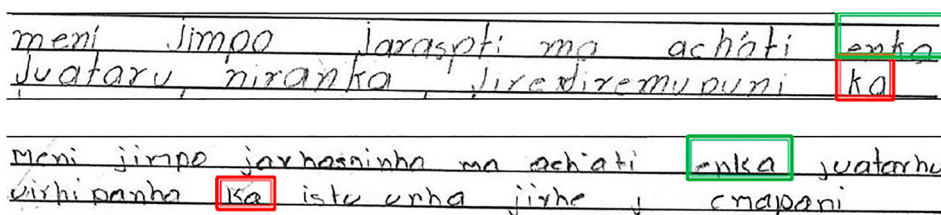 meni jimpo jaraspti ma achati enka
juataru niranka, jirexiremupuni ka
meni jimpo jarhasninha ma achati enka juatarhu
virhipanha ka istu unha jirhe j cmapani